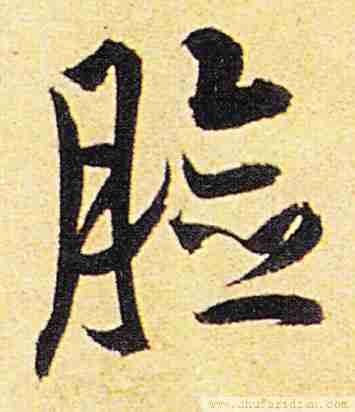 脸
www.shufazidian.com